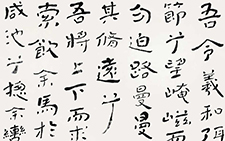 吾令羲和弭
節兮望崦嵫
勿迫路曼曼
其脩遠兮
吾將上下而求
索飲余馬於
咸池兮摠余轡